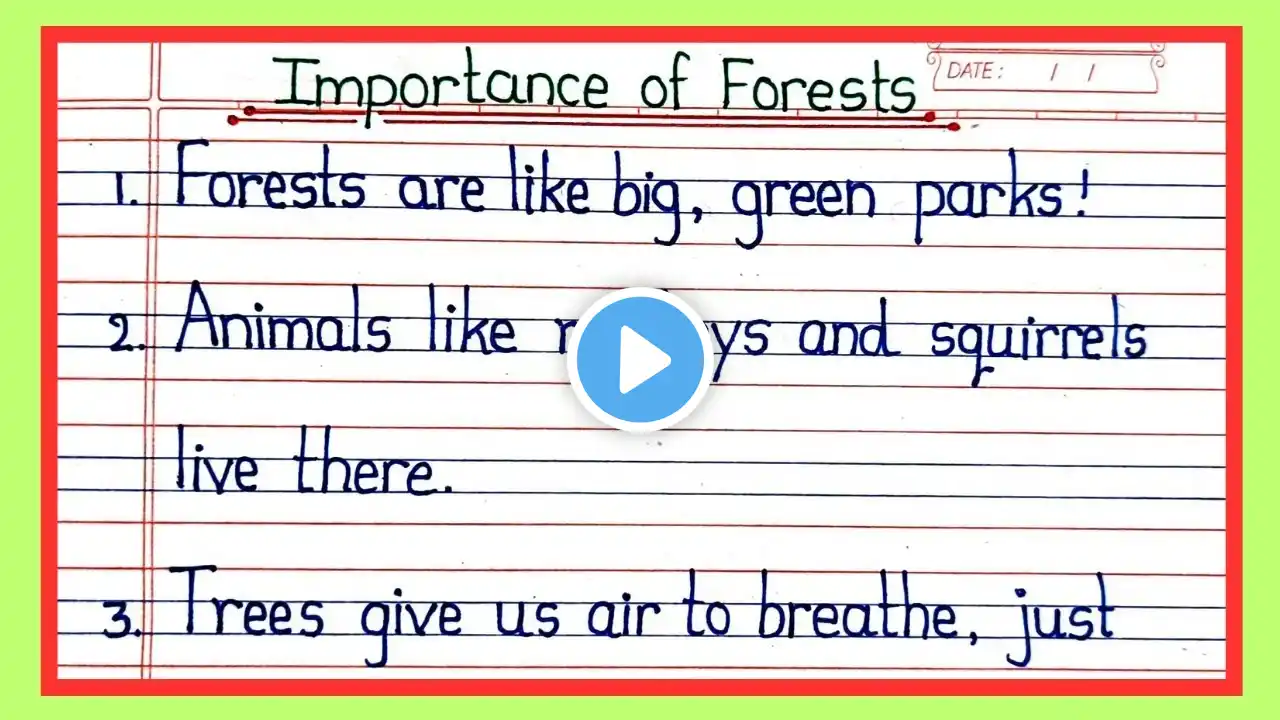 Importance of Forests
DATE: / /
1. Forests are like big, green parks!
2. Animals like and squirrels
live there.
3. Trees give us air to breathe, just